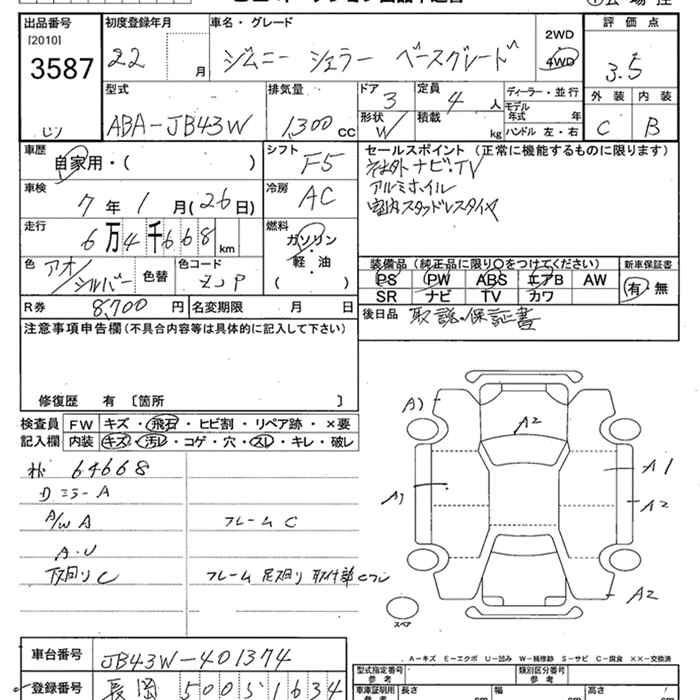 出品番号 初度登録年月 車名・グレード 評価点
[2010] 3587 22 月 ジムニー シエラー ベースグレード 2WD 4WD 3.5
型式 排気量 ドア 定員 ディーラー・並行 外装 内装
ABA-JB43W 1,300 cc 3 4 人 モデル年式 年 C B
形状 W 積載 kg ハンドル 左・右
車歴 自家用・( ) シフト F5 セールスポイント (正常に機能するものに限ります)
社外ナビ・TV
車検 7 年 1 月 (26日) 冷房 AC アルミホイル
室内スタッドレスタイヤ
走行 6 万 4 千 6 6 8 km 燃料 ガソリン・軽・油 ( )
色 アオ/シルバー 色替 色コード ZJP 装備品 (純正品に限り○をつけてください) 新車保証書
PS PW ABS エアB AW 有・無
R券 8,700 円 名変期限 月 日 SR ナビ TV カワ
注意事項申告欄 (不具合内容等は具体的に記入して下さい) 後日品 取説・保証書
修復歴 有 [箇所 ]
検査員記入欄 FW キズ・飛石・ヒビ割・リペア跡・×要
内装 キズ・汚レ・コゲ・穴・スレ・キレ・破レ
64668
ミラーA
A/W A フレーム C
A・U
下回り C フレーム 足回り 取付部 Cフレ
A1
A2
A1
A1
A2
A2
スペア
A-キズ E-エクボ U-凹み W-補修跡 S-サビ C-腐食 ××-交換済
車台番号 JB43W-401374 型式指定番号 参考 類別区分番号 参考
登録番号 長岡 500 ら 1634 車庫証明用 参考 長さ cm 幅 cm 高さ cm